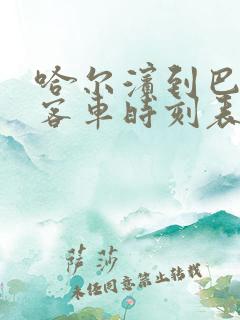 哈尔滨到巴
客车时刻表
萨莎
未经同意禁止转载